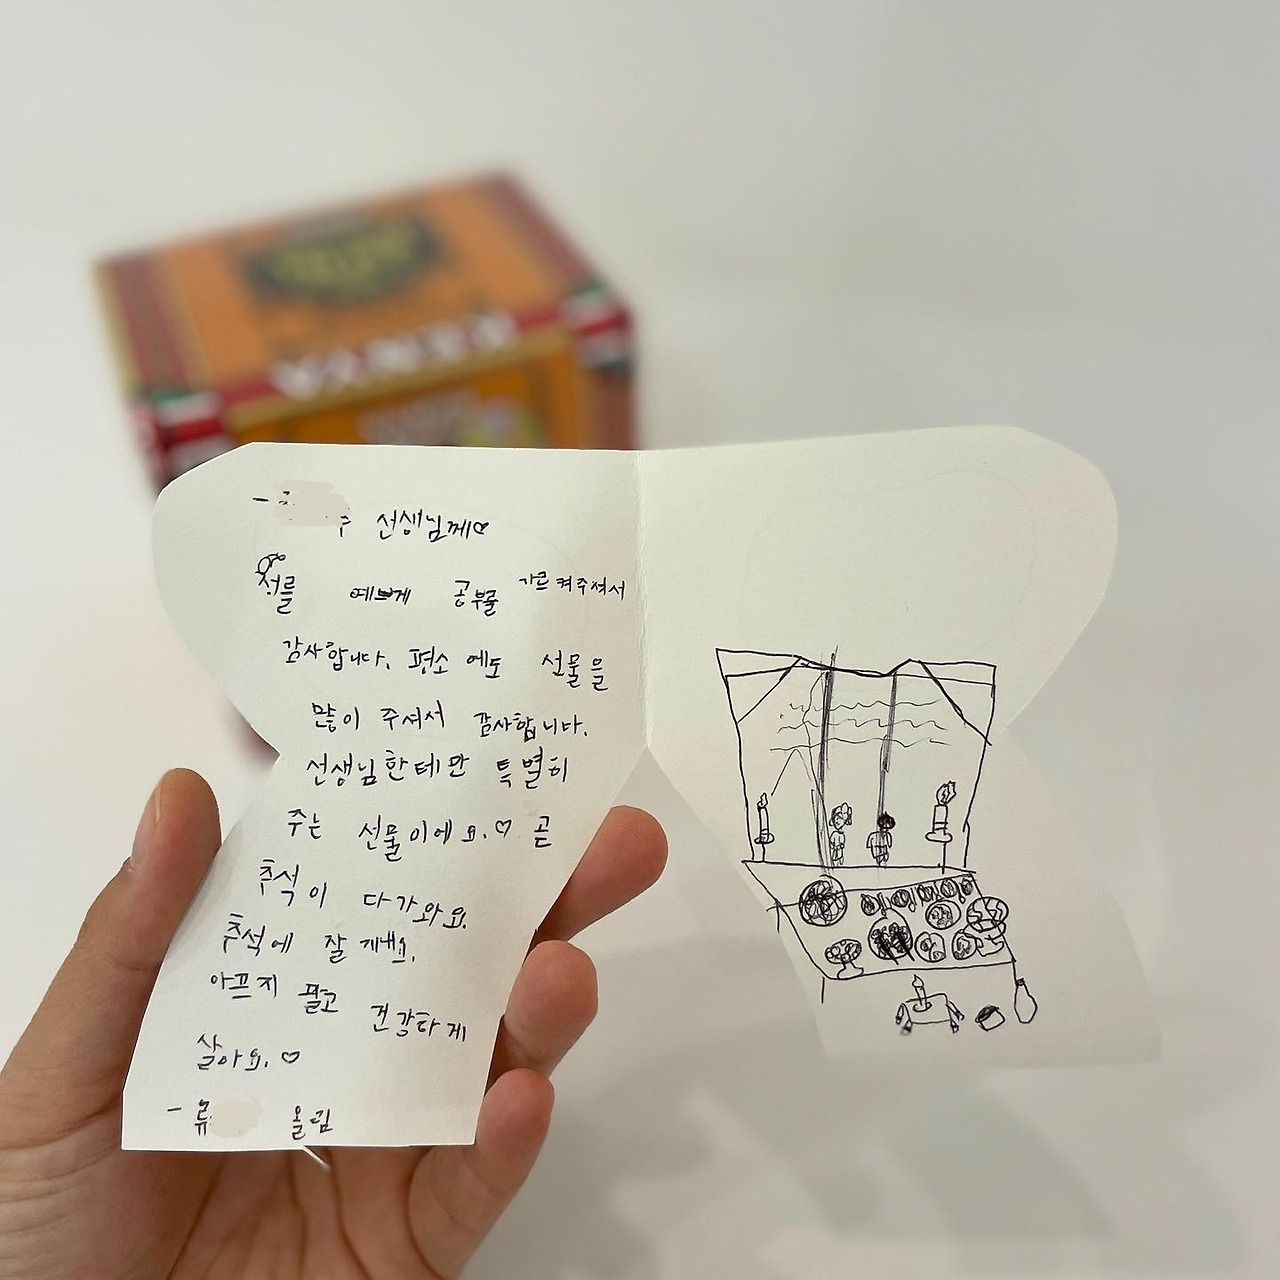 KENYA
선생님께♡
저를 예쁘게 공부를 가르켜주셔서
감사합니다. 평소에도 선물을
많이 주셔서 감사합니다.
선생님한테만 특별히
주는 선물이에요.♡ 곧
추석이 다가와요.
추석에 잘 계내요.
아프지 말고 건강하게
살아요.♡
- 류 올림